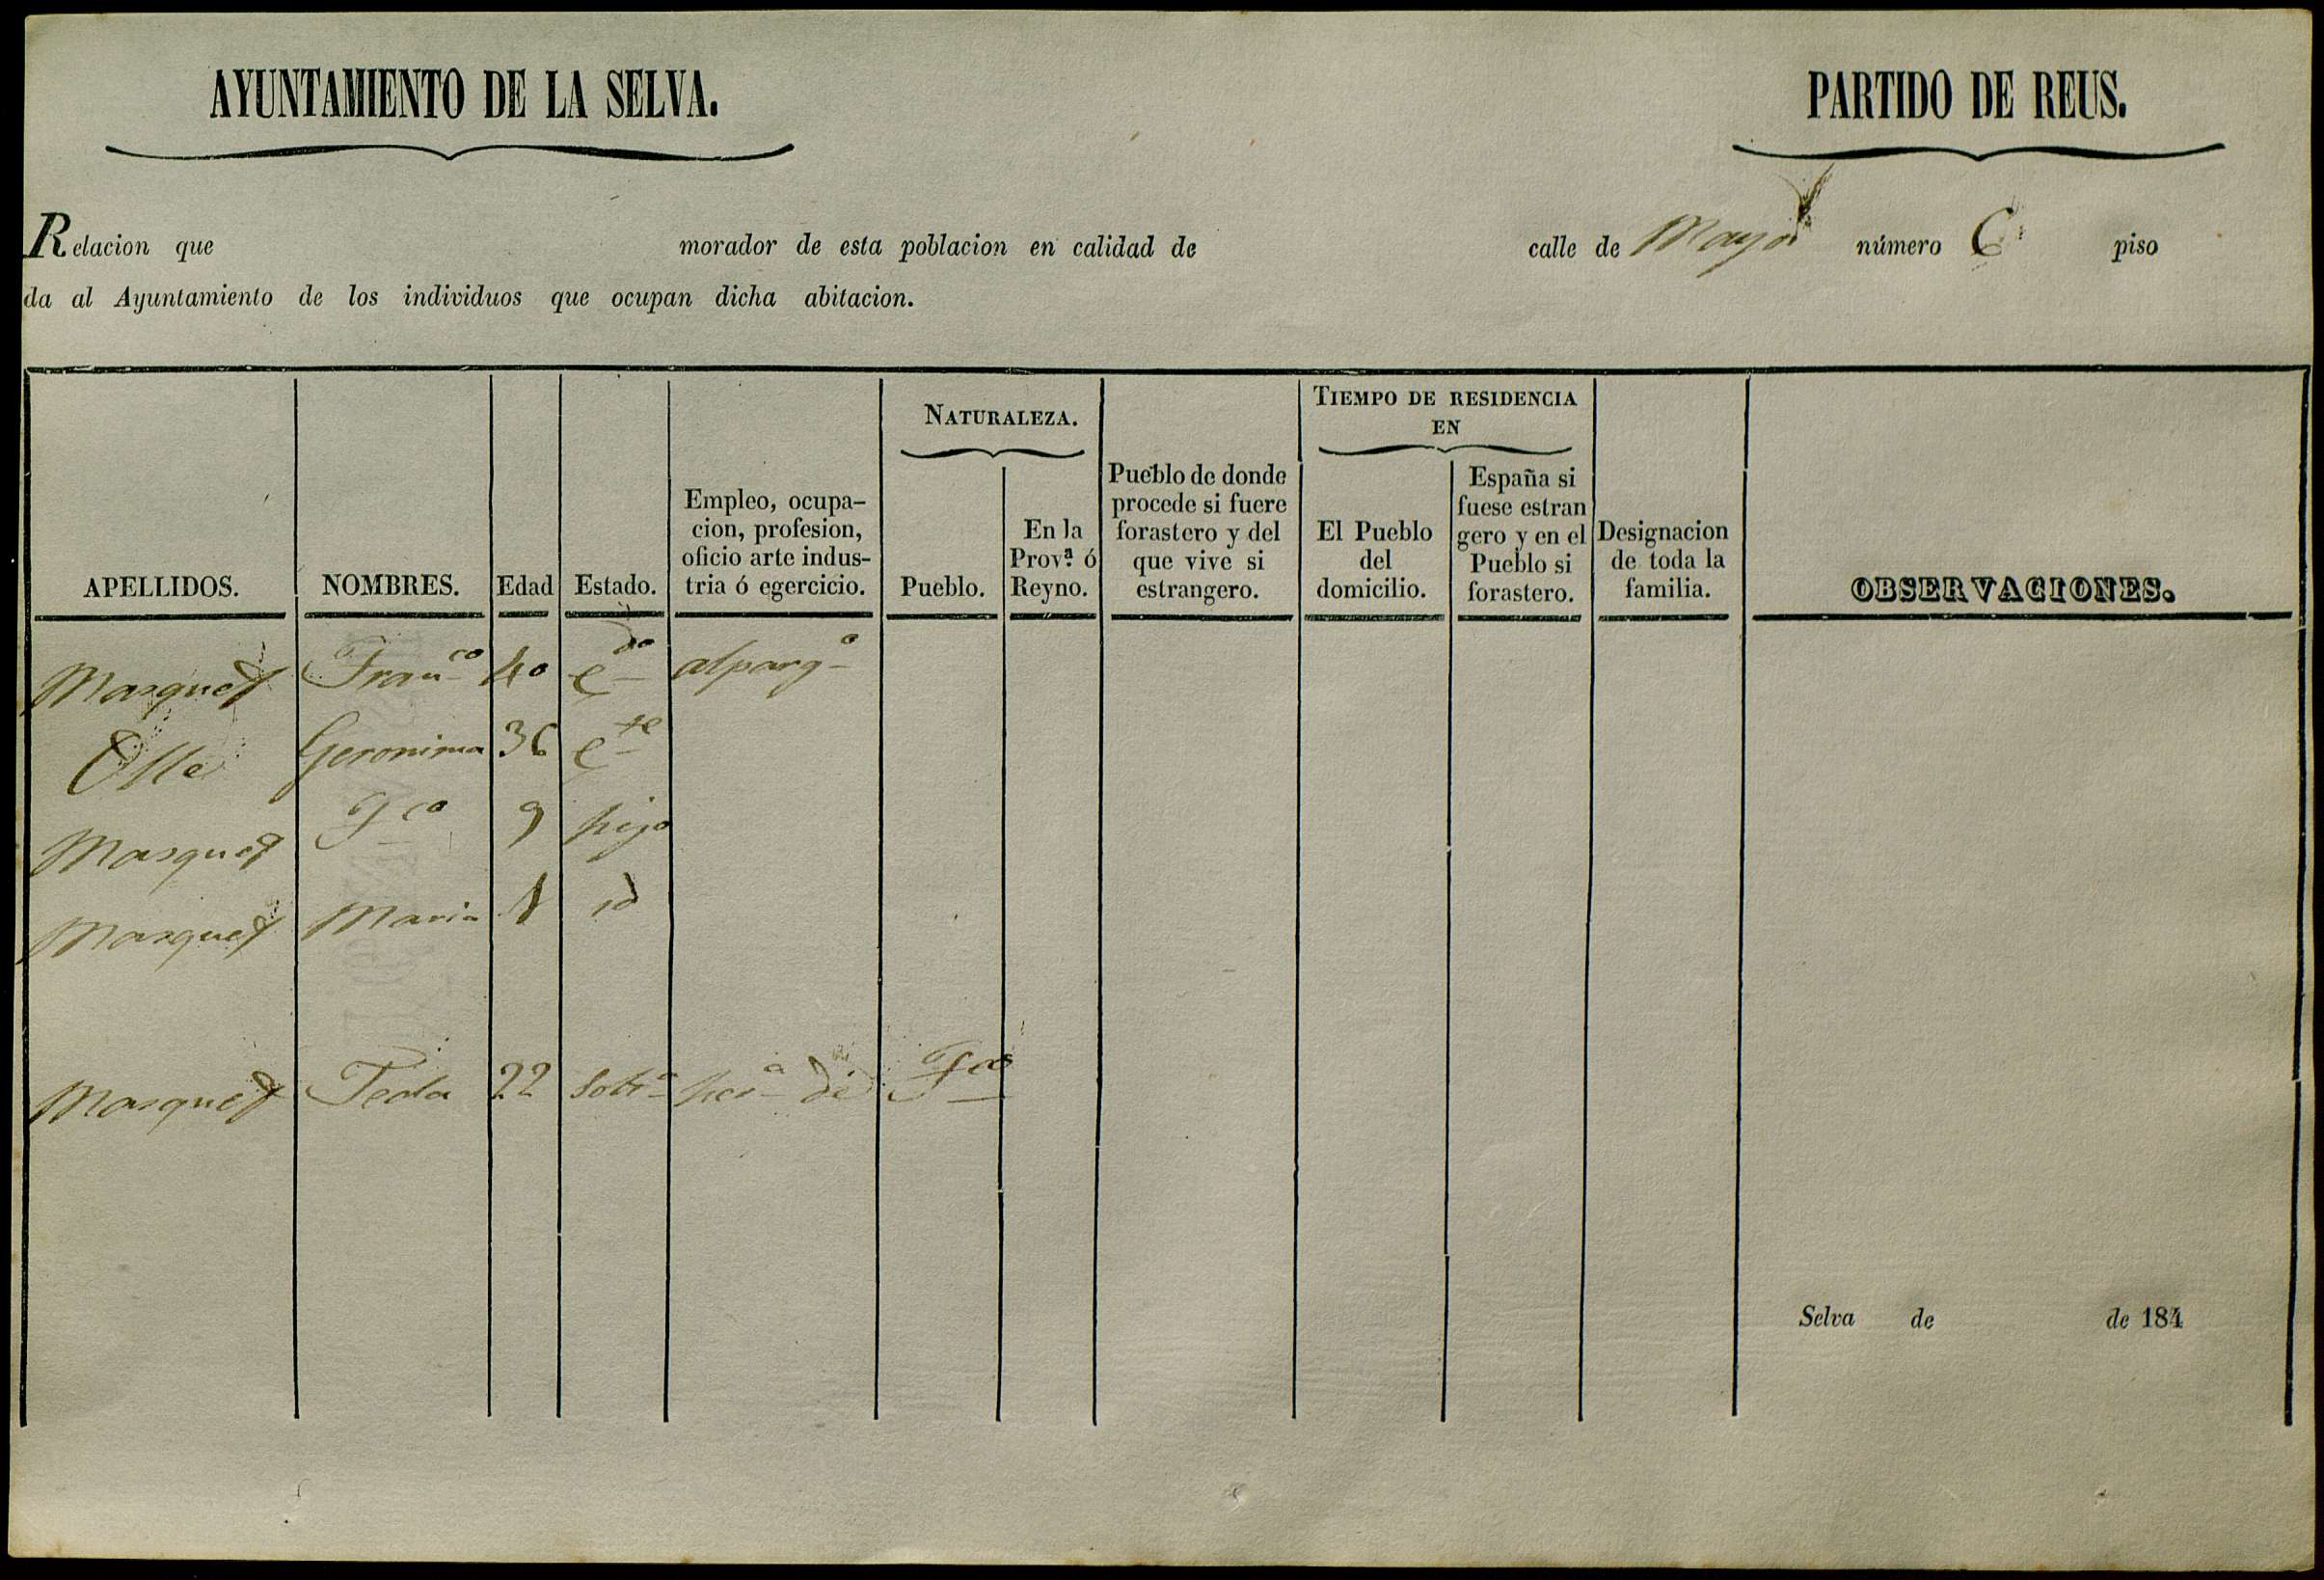 AYUNTAMIENTO DE LA SELVA.
PARTIDO DE REUS.
Relacion que morador de esta poblacion en calidad de calle de Mayor número 6 piso
da al Ayuntamiento de los individuos que ocupan dicha abitacion.
APELLIDOS.
NOMBRES.
Edad
Estado.
Empleo, ocupa-
cion, profesion,
oficio arte indus-
tria ó egercicio.
NATURALEZA.
Pueblo.
En la
Prov.ª ó
Reyno.
Pueblo de donde
procede si fuere
forastero y del
que vive si
estrangero.
TIEMPO DE RESIDENCIA
EN
El Pueblo
del
domicilio.
España si
fuese estran
gero y en el
Pueblo si
forastero.
Designacion
de toda la
familia.
OBSERVACIONES.
Masquet Fran.co 40 c.do alparg.o
Olle Geronima 36 c.te
Masquet F.co 9 hijo
Masquet Maria 1 id
Masquet Tecla 22 Sobr.a her.a de F.co
Selva de de 184